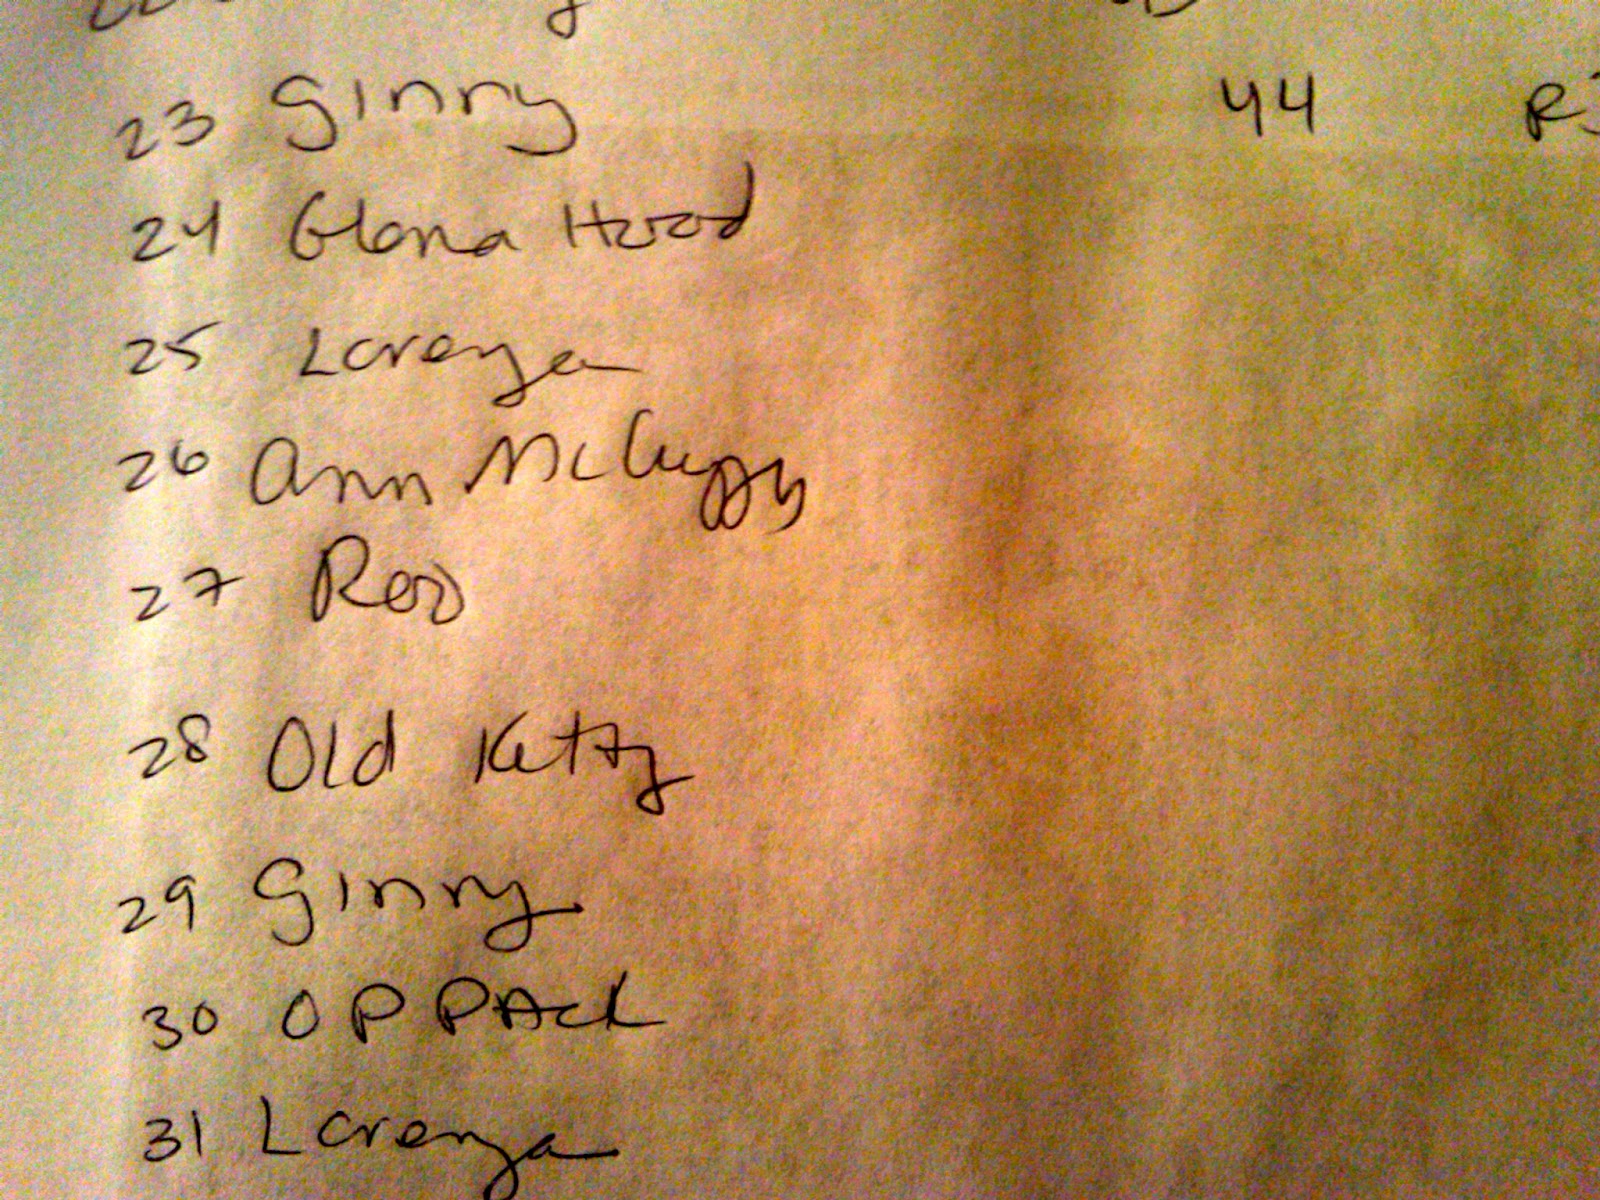 23 Ginny 44
24 Glona Hood
25 Lorenza
26 Ann McCuggy
27 Roo
28 Old Ketty
29 Ginny
30 OP PAck
31 Lorenza